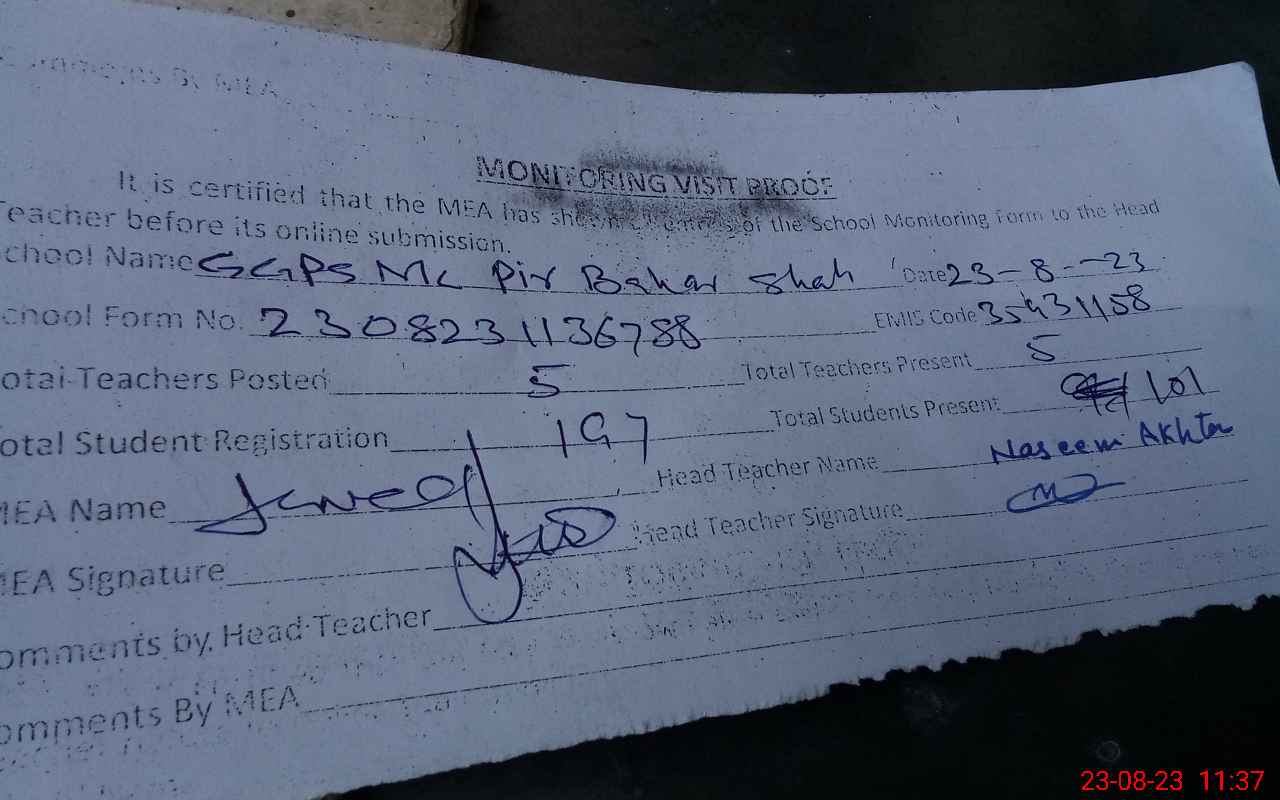 By MEA
MONITORING VISIT PROOF
It is certified that the MEA has shown of the School Monitoring Form to the Head
Teacher before its online submission.
chool Name GGPS MC Pir Bahar Shah Date 23-8-23
chool Form No. 2308231136788 EMIS Code 35431158
otal Teachers Posted 5 Total Teachers Present 5
otal Student Registration 197 Total Students Present 101
MEA Name Javed Head Teacher Name Naseem Akhtar
MEA Signature Head Teacher Signature
omments by Head Teacher
omments By MEA
23-08-23 11:37